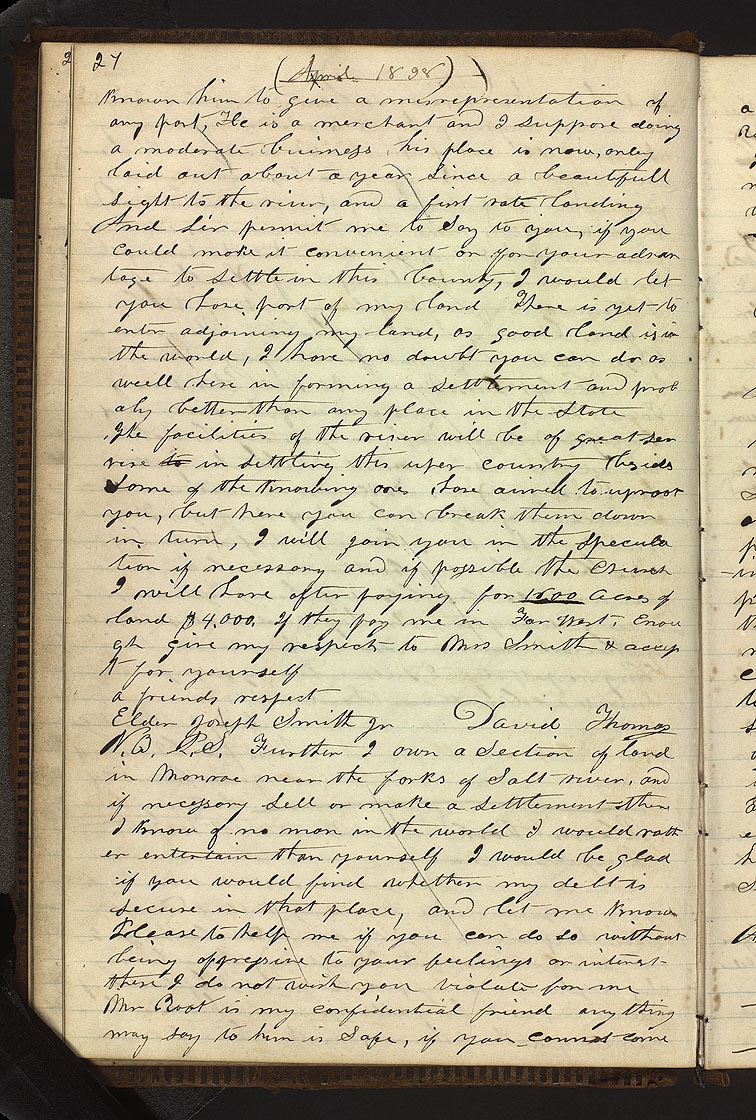 27
(April 1838)
known him to give a misrepresentation of
any port, He is a merchant and I suppose doing
a moderate buisness his place is now, only
laid out about a year since a beautifull
sight to the river, and a first rate landing
And Sir permit me to Say to you, if you
could make it convenient or for your advan
tage to settle in this County, I would let
you have part of my land There is yet to
enter adjoining my land, as good land is in
the world, I have no doubt you can do as
well here in forming a settlement and prob
aly better than any place in the State
The facilities of the river will be of great ser
vise to in settling this uper country besids
Some of the knowing ones have aimed to uproot
you, but here you can break them down
in turn, I will join you in the specula
tion if necessary and if possible the Church
I will have after paying for 1600 Acres of
land $4,000, If they pay me in Far West, Enou
gh give my respects to Mrs Smith & accep
t for yourself
a friends respect
Elder Joseph Smith Jr David Thomas
N.B. P.S. Further I own a Section of land
in Monroe near the forks of Salt river, and
if necessary Sell or make a settlement there
I know of no man in the world I would rath
er entertain than yourself I would be glad
if you would find whether my debt is
secure in that place, and let me know
Please to help me if you can do so without
being oppressive to your feelings or interest
there I do not wish you violate for me
Mr Root is my confidential friend anything
may say to him is Safe, if you cannot come